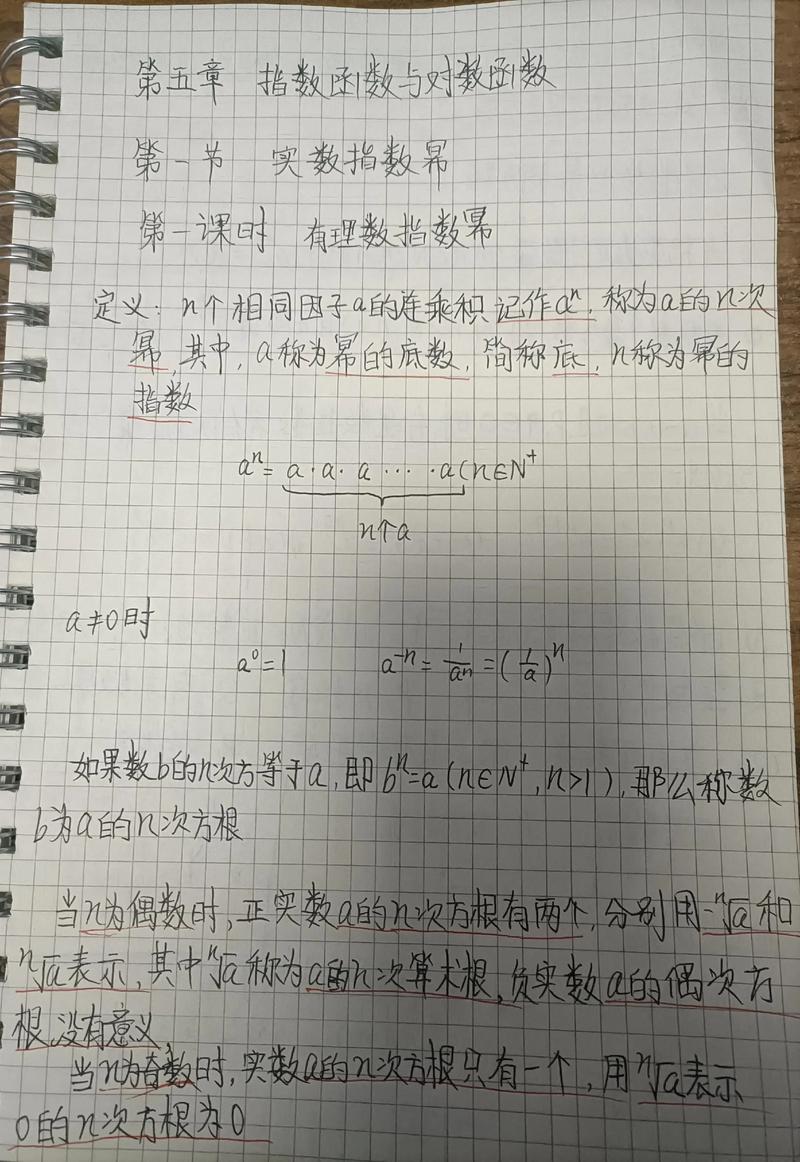 第五章 指数函数与对数函数
第一节 实数指数幂
第一课时 有理数指数幂
定义：n个相同因子a的连乘积记作aⁿ，称为a的n次
幂，其中，a称为幂的底数，简称底，n称为幂的
指数
aⁿ= a·a·a ··· ·a(n∈N⁺
n个a
a≠0时
a⁰=1 a⁻ⁿ=1/aⁿ=(1/a)ⁿ
如果数b的n次方等于a，即bⁿ=a(n∈N⁺,n>1)，那么称数
b为a的n次方根
当n为偶数时，正实数a的n次方根有两个，分别用-ⁿ√a和
ⁿ√a表示，其中ⁿ√a称为a的n次算术根，负实数a的偶次方
根没有意义
当n为奇数时，实数a的n次方根只有一个，用ⁿ√a表示
0的n次方根为0